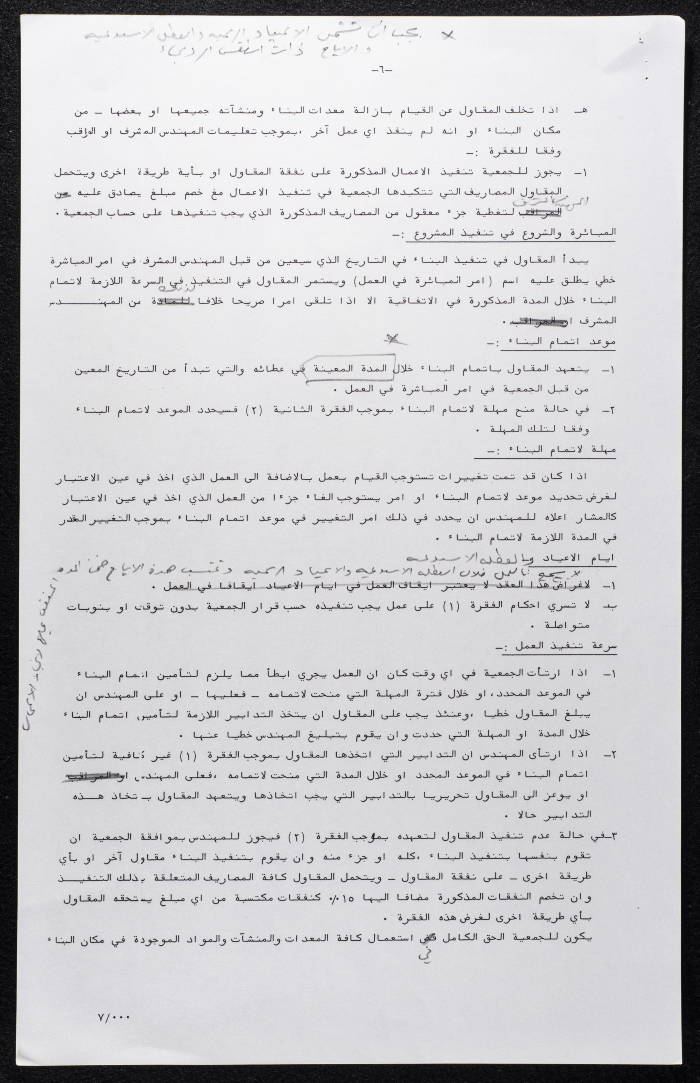 × يجب ان تشمل الاعياد الرسمية والعطل الاسبوعية
والايام ذات الطقس الرديء
-٦-
هـ اذا تخلف المقاول عن القيام بازالة معدات البناء ومنشآته جميعها او بعضها - من
مكان البناء او انه لم ينفذ اي عمل آخر ،بموجب تعليمات المهندس المشرف او المراقب
وفقا للفقرة :-
١- يجوز للجمعية تنفيذ الاعمال المذكورة على نفقة المقاول او بأية طريقة اخرى ويتحمل
المقاول المصاريف التي تتكبدها الجمعية في تنفيذ الاعمال مع خصم مبلغ يصادق عليه من
المهندس المشرف
المراقب لتغطية جزء معقول من المصاريف المذكورة الذي يجب تنفيذها على حساب الجمعية .
المباشرة والشروع في تنفيذ المشروع :-
يبدأ المقاول في تنفيذ البناء في التاريخ الذي سيعين من قبل المهندس المشرف في امر المباشرة
خطي يطلق عليه اسم (امر المباشرة في العمل) ويستمر المقاول في التنفيذ في السرعة اللازمة لاتمام
لذلك
البناء خلال المدة المذكورة في الاتفاقية الا اذا تلقى امرا صريحا خلافا للمادة من المهندس
المشرف او المراقب .
موعد اتمام البناء :-
×
١- يتعهد المقاول باتمام البناء خلال المدة المعينة في عطائه والتي تبدأ من التاريخ المعين
من قبل الجمعية في امر المباشرة في العمل .
٢- في حالة منح مهلة لاتمام البناء بموجب الفقرة الثانية (٢) فسيحدد الموعد لاتمام البناء
وفقا لتلك المهلة .
مهلة لاتمام البناء :-
اذا كان قد تمت تغييرات تستوجب القيام بعمل بالاضافة الى العمل الذي اخذ في عين الاعتبار
لغرض تحديد موعد لاتمام البناء او امر يستوجب الغاء جزءا من العمل الذي اخذ في عين الاعتبار
كالمشار اعلاه للمهندس ان يحدد في ذلك امر التغيير في موعد اتمام البناء بموجب التغيير القدر
في المدة اللازمة لاتمام البناء .
ايام الاعياد والعطل الاسبوعية
× يسمح بالعمل خلال العطل الاسبوعية والاعياد الرسمية وتحتسب هذه الايام ضمن المدة
١- لاغراض هذا العقد لا يعتبر ايقاف العمل في ايام الاعياد ايقافا في العمل .
ب- لا تسري احكام الفقرة (١) على عمل يجب تنفيذه حسب قرار الجمعية بدون توقف او بنوبات
متواصلة .
سرعة تنفيذ العمل :-
١- اذا ارتأت الجمعية في اي وقت كان ان العمل يجري ابطأ مما يلزم لتأمين اتمام البناء
في الموعد المحدد، او خلال فترة المهلة التي منحت لاتمامه - فعليها - او على المهندس ان
يبلغ المقاول خطيا ،وعندئذ يجب على المقاول ان يتخذ التدابير اللازمة لتأمين اتمام البناء
خلال المدة او المهلة التي حددت وان يقوم بتبليغ المهندس خطيا عنها .
٢- اذا ارتأى المهندس ان التدابير التي اتخذها المقاول بموجب الفقرة (١) غير كافية لتأمين
اتمام البناء في الموعد المحدد او خلال المدة التي منحت لاتمامه ،فعلى المهندس او المراقب
او يوعز الى المقاول تحريريا بالتدابير التي يجب اتخاذها ويتعهد المقاول باتخاذ هذه
التدابير حالا .
٣-في حالة عدم تنفيذ المقاول لتعهده بموجب الفقرة (٢) فيجوز للمهندس بموافقة الجمعية ان
تقوم بنفسها بتنفيذ البناء ،كله او جزء منه وان يقوم بتنفيذ البناء مقاول آخر او بأي
طريقة اخرى - على نفقة المقاول - ويتحمل المقاول كافة المصاريف المتعلقة بذلك التنفيذ
وان تخصم النفقات المذكورة مضافا اليها ١٥٪ كنفقات مكتسبة من اي مبلغ يستحقه المقاول
بأي طريقة اخرى لغرض هذه الفقرة .
يكون للجمعية الحق الكامل في استعمال كافة المعدات والمنشآت والمواد الموجودة في مكان البناء
في
٧/٠٠٠